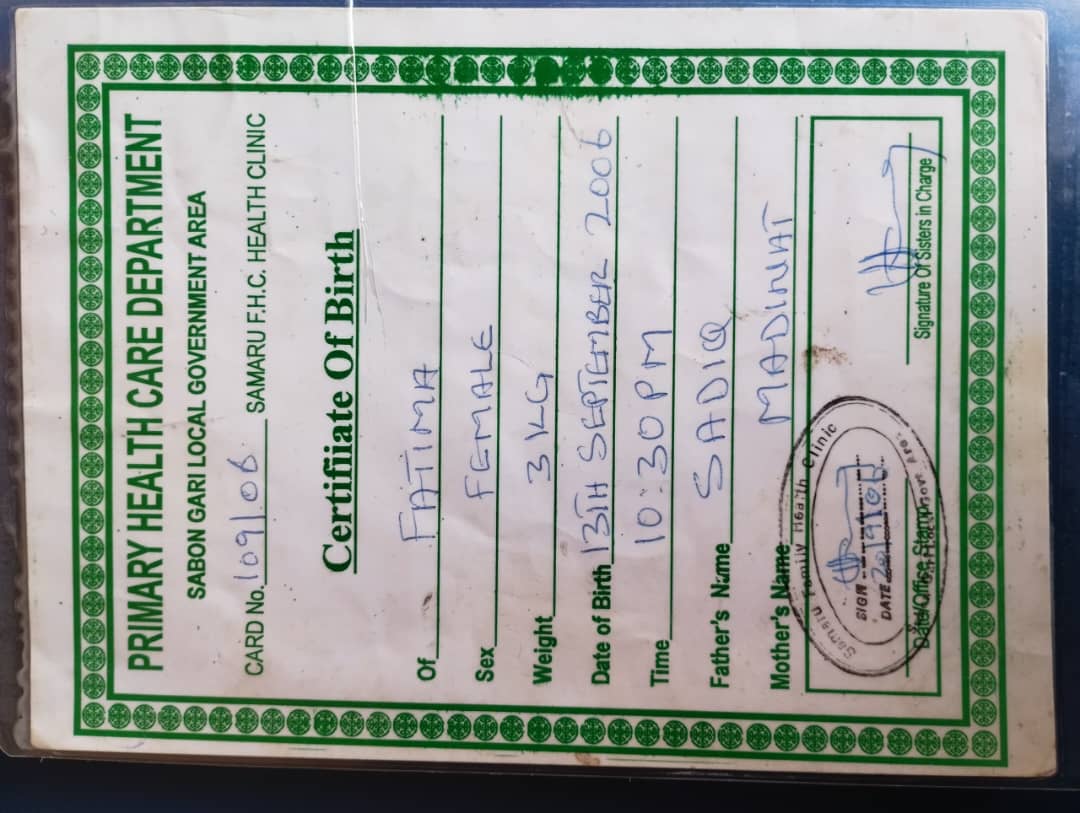 PRIMARY HEALTH CARE DEPARTMENT
SABON GARI LOCAL GOVERNMENT AREA
CARD No. 109/06 SAMARU F.H.C. HEALTH CLINIC
Certifiiate Of Birth
Of FATIMA
Sex FEMALE
Weight 3 KG
Date of Birth 13TH SEPTEMBER 2006
Time 10:30 PM
Father's Name SADIQ
Mother's Name MADINAT
Samaru Family Health Clinic
SIGN
DATE
Date/Office Stamp
Signature Of Sisters in Charge